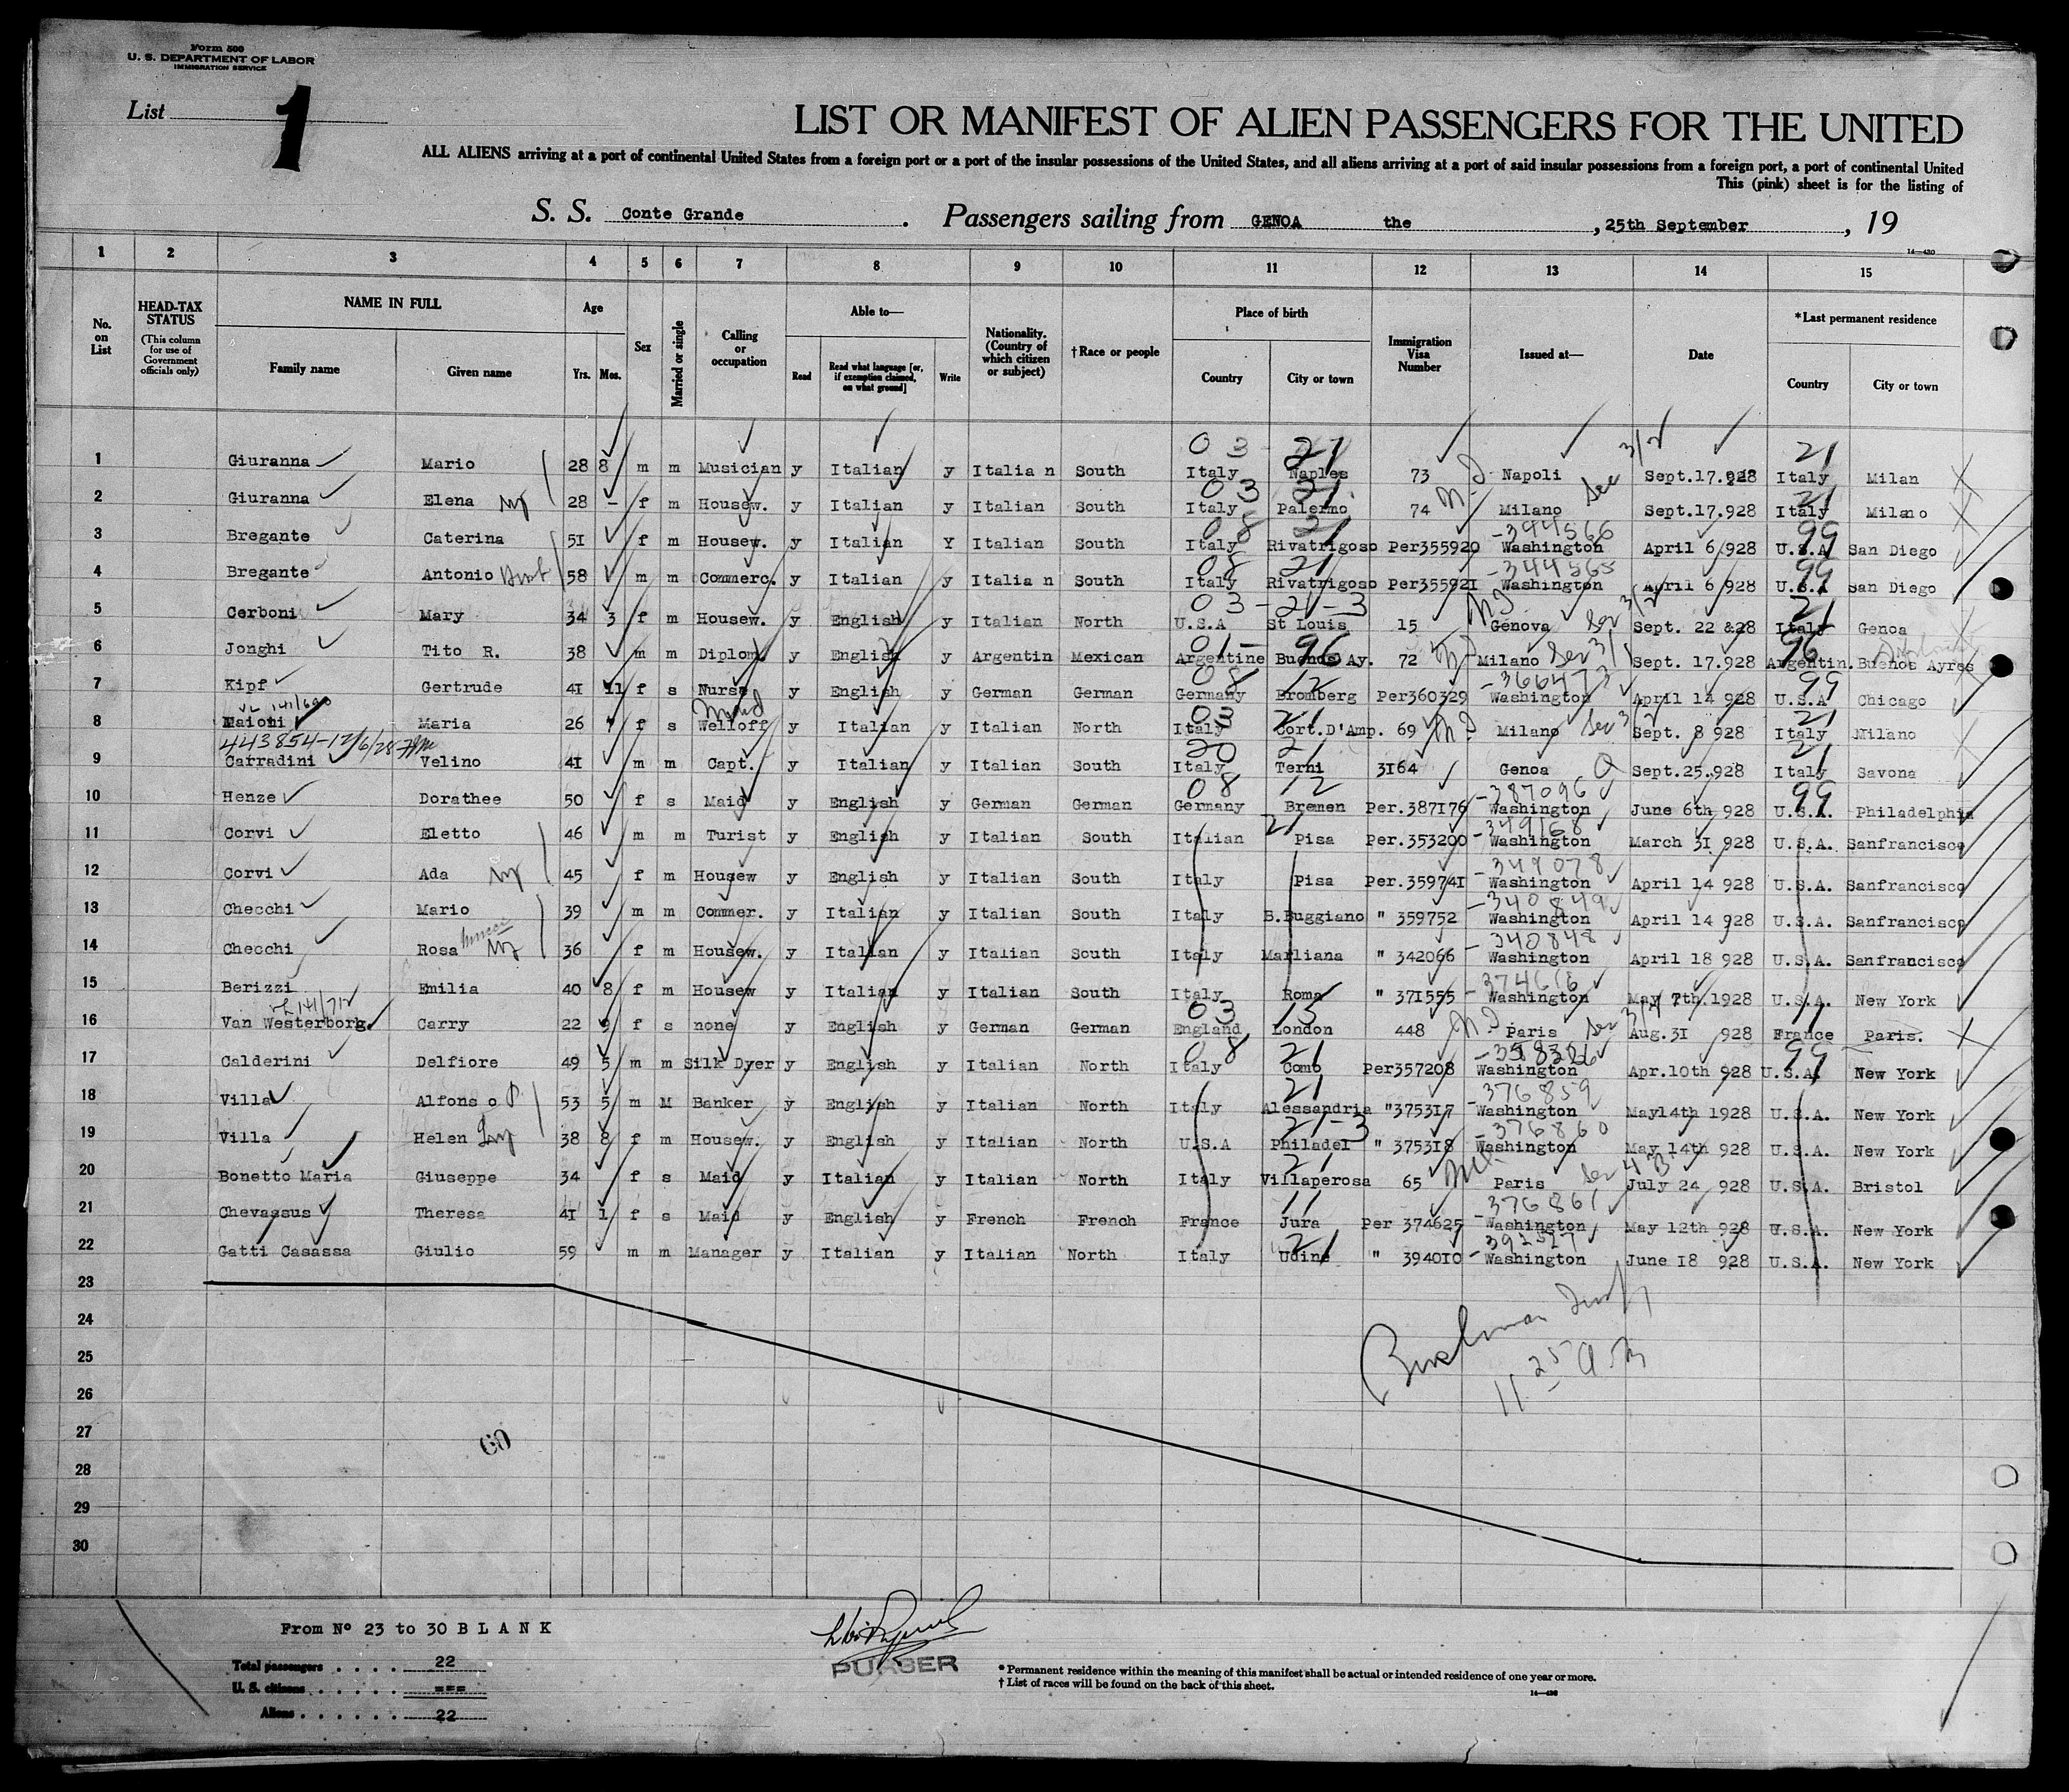 Form 500
U. S. DEPARTMENT OF LABOR
IMMIGRATION SERVICE
List 1
LIST OR MANIFEST OF ALIEN PASSENGERS FOR THE UNITED
ALL ALIENS arriving at a port of continental United States from a foreign port or a port of the insular possessions of the United States, and all aliens arriving at a port of said insular possessions from a foreign port, a port of continental United
This (pink) sheet is for the listing of
S. S. Conte Grande . Passengers sailing from GENOA the , 25th September , 19
14-430
1 2 3 4 5 6 7 8 9 10 11 12 13 14 15
No. on List
HEAD-TAX STATUS (This column for use of Government officials only)
NAME IN FULL Family name Given name
Age Yrs. Mos.
Sex
Married or single
Calling or occupation
Able to— Read Read what language [or, if exemption claimed, on what ground] Write
Nationality. (Country of which citizen or subject)
† Race or people
Place of birth Country City or town
Immigration Visa Number
Issued at—
Date
* Last permanent residence Country City or town
03 21 21
1 Giuranna Mario 28 8 m m Musician y Italian y Italia n South Italy Naples 73 Napoli Sept.17.928 Italy Milan
03 21 21
2 Giuranna Elena 28 - f m Housew. y Italian y Italian South Italy Palermo 74 Milano Sept.17.928 Italy Milano
08 21 -344566 99
3 Bregante Caterina 51 f m Housew. y Italian Y Italian South Italy Rivatrigoso Per355920 Washington April 6 928 U.S.A San Diego
08 21 -344565 99
4 Bregante Antonio 58 m m Commerc. y Italian y Italia n South Italy Rivatrigoso Per355921 Washington April 6 928 U.S.A San Diego
03-21-3 21
5 Cerboni Mary 34 3 f m Housew. y English y Italian North U.S.A St Louis 15 Genova Sept. 22 928 Italy Genoa
01- 96 96
6 Jonghi Tito R. 38 m m Diplom. y English y Argentin Mexican Argentine Buenos Ay. 72 Milano Sept. 17.928 Argentin. Buenos Ayres
08 12 -366473 99
7 Kipf Gertrude 41 11 f s Nurse y English y German German Germany Bromberg Per360329 Washington April 14 928 U.S.A Chicago
03 21 21
8 Maioni Maria 26 f s Welloff y Italian y Italian North Italy Cort.D'Amp. 69 Milano Sept. 8 928 Italy Milano
443854-12/6/28 20 21 21
9 Carradini Velino 41 m m Capt. y Italian y Italian South Italy Terni 3164 Genoa Sept.25.928 Italy Savona
08 12 -387096 99
10 Henze Dorathee 50 f s Maid y English y German German Germany Bremen Per.387176 Washington June 6th 928 U.S.A. Philadelphia
21 -349168
11 Corvi Eletto 46 m m Turist y English y Italian South Italian Pisa Per.353200 Washington March 31 928 U.S.A. Sanfrancisco
-349078
12 Corvi Ada 45 f m Housew y English y Italian South Italy Pisa Per.359741 Washington April 14 928 U.S.A. Sanfrancisco
-340849
13 Checchi Mario 39 m m Commer. y Italian y Italian South Italy B.Buggiano " 359752 Washington April 14 928 U.S.A. Sanfrancisco
-340848
14 Checchi Rosa 36 f m Housew. y Italian y Italian South Italy Marliana " 342066 Washington April 18 928 U.S.A. Sanfrancisco
-374616
15 Berizzi Emilia 40 8 f m Housew y Italian y Italian South Italy Roma " 371555 Washington May 7th.1928 U.S.A. New York
03 13 11
16 Van Westerborg. Carry 22 9 f s none y English y German German England London 448 Paris Aug.31 928 France Paris.
08 21 99
17 Calderini Delfiore 49 5 m m Silk Dyer y English y Italian North Italy Como Per357208 Washington Apr.10th 928 U.S.A. New York
21 -376859
18 Villa Alfons o 53 5 m M Banker y English y Italian North Italy Alessandria "375317 Washington May14th 1928 U.S.A. New York
21-3 -376860
19 Villa Helen 38 8 f m Housew. y English y Italian North U.S.A Philadel " 375318 Washington May 14th 928 U.S.A. New York
21
20 Bonetto Maria Giuseppe 34 f s Maid y Italian y Italian North Italy Villaperosa 65 Paris July 24 928 U.S.A. Bristol
11 -376861
21 Chevassus Theresa 41 1 f s Maid y English y French French France Jura Per 374625 Washington May 12th 928 U.S.A. New York
21
22 Gatti Casassa Giulio 59 m m Manager y Italian y Italian North Italy Udine " 394010 Washington June 18 928 U.S.A. New York
23
24
25
26
27
28
29
30
11 25 a m
60
From No 23 to 30 B L A N K
Total passengers . . . . 22
U. S. citizens . . . . . . ===
Aliens . . . . . . 22
PURSER
* Permanent residence within the meaning of this manifest shall be actual or intended residence of one year or more.
† List of races will be found on the back of this sheet.
14-430